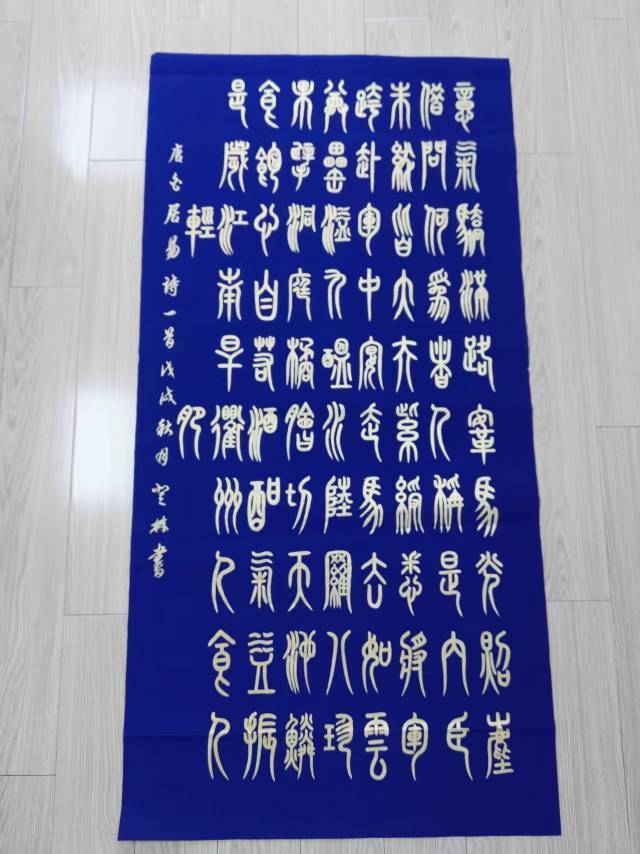 意氣驕滿路鞍馬光照塵
借問何為者人稱是內臣
朱紱皆大夫紫綬悉將軍
誇赴軍中宴走馬去如雲
尊罍溢九醞水陸羅八珍
果擘洞庭橘膾切天池鱗
食飽心自若酒酣氣益振
是歲江南旱衢州人食人
輕肥
唐白居易詩一首戊戌秋月書